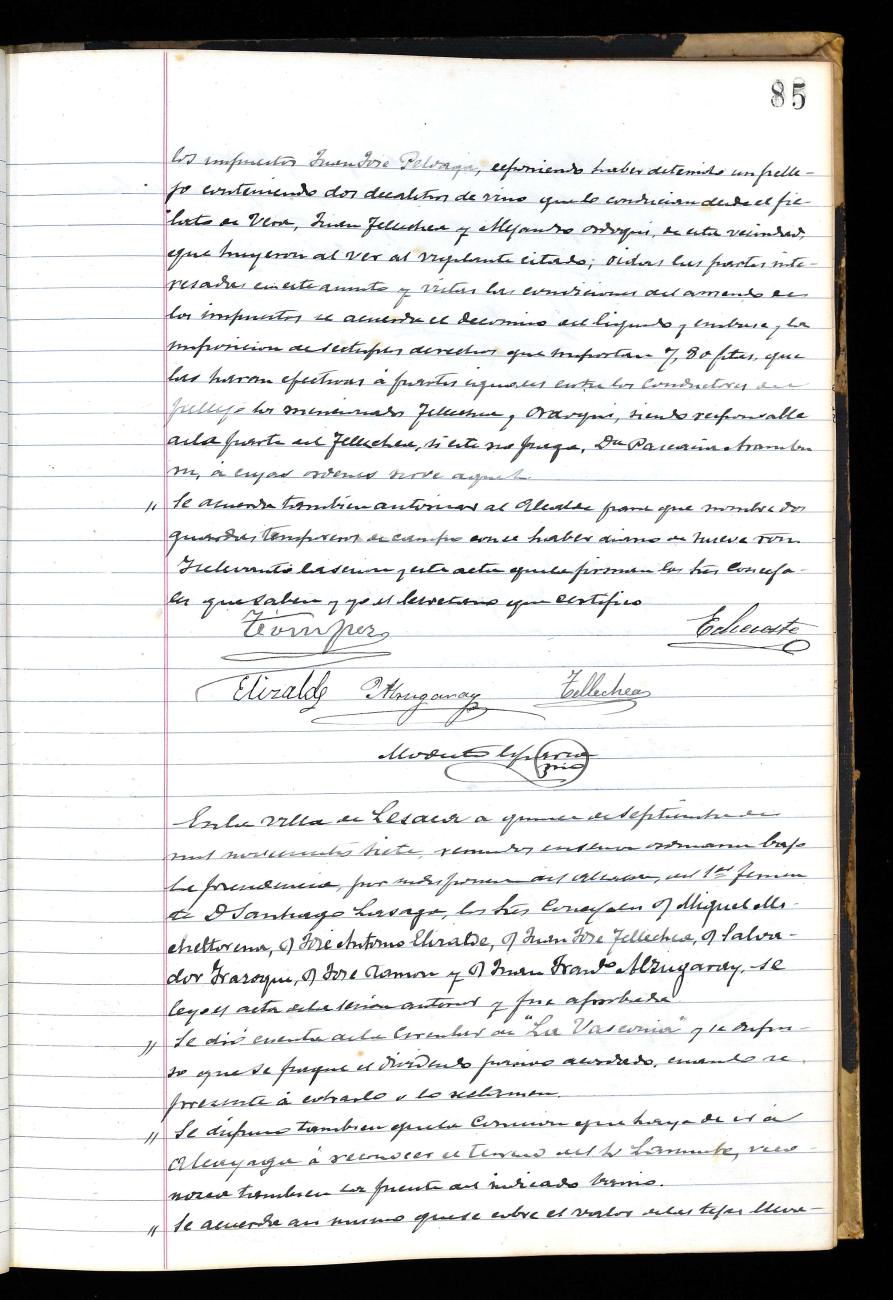 85
los impuestos Juan José Peloaga, exponiendo haber detenido un pelle-
jo conteniendo dos decalitros de vino que lo conducian desde el fie-
lato de Vera, Juan Tellechea y Alejandro Ordoqui, de esta vecindad,
que huyeron al ver al vigilante citado; oidas las partes inte-
resadas en este asunto y vistas las condiciones del arriendo de
los impuestos se acuerda el decomiso del liquido y embase y la
imposicion de sextuples derechos que importan 7,80 ptas. que
las harán efectivas á partes iguales entre los conductores del
pellejo los mencionados Tellechea y Ordoqui, siendo responsable
de la parte del Tellechea, si este no paga, Dª Pascasia Arambu
ru, á cuyas ordenes sirve aquel.
" Se acuerda tambien autorizar al Alcalde para que nombre dos
guardas temporeros de campo con el haber diario de nueve rs.
Y se levantó la sesion y esta acta que la firman los Sres Conceja-
les que saben y yo el Secretario que certifico
Echeveste
Elizalde Alzugaray Tellechea
Modesto
En la villa de Lesaca a quince de Septiembre de
mil novecientos siete, reunidos en sesion ordinaria bajo
la presidencia, por indisposicion del Alcalde, del 1er Tenien
te D Santiago Lasaga, los Sres Concejales D Miguel Mi-
cheltorena, D José Antonio Elizalde, D Juan José Tellechea, D Salva-
dor Irazoqui, D José Ramon y D Juan Franco Alzugaray, se
leyó el acta de la sesion anterior y fue aprobada
" Se dió cuenta de la Circular de "La Vasconia" y se dispu-
so que se pague el dividendo pasivo acordado, cuando se
presente á cobrarlo o lo reclamen.
" Se dispuso tambien que la Comision que haya de ir á
Alcayaga á reconocer el terreno del Sr Larrache, reco-
nozca tambien la fuente del indicado barrio.
" Se acuerda asi mismo que se cobre el valor de las tejas lleva-